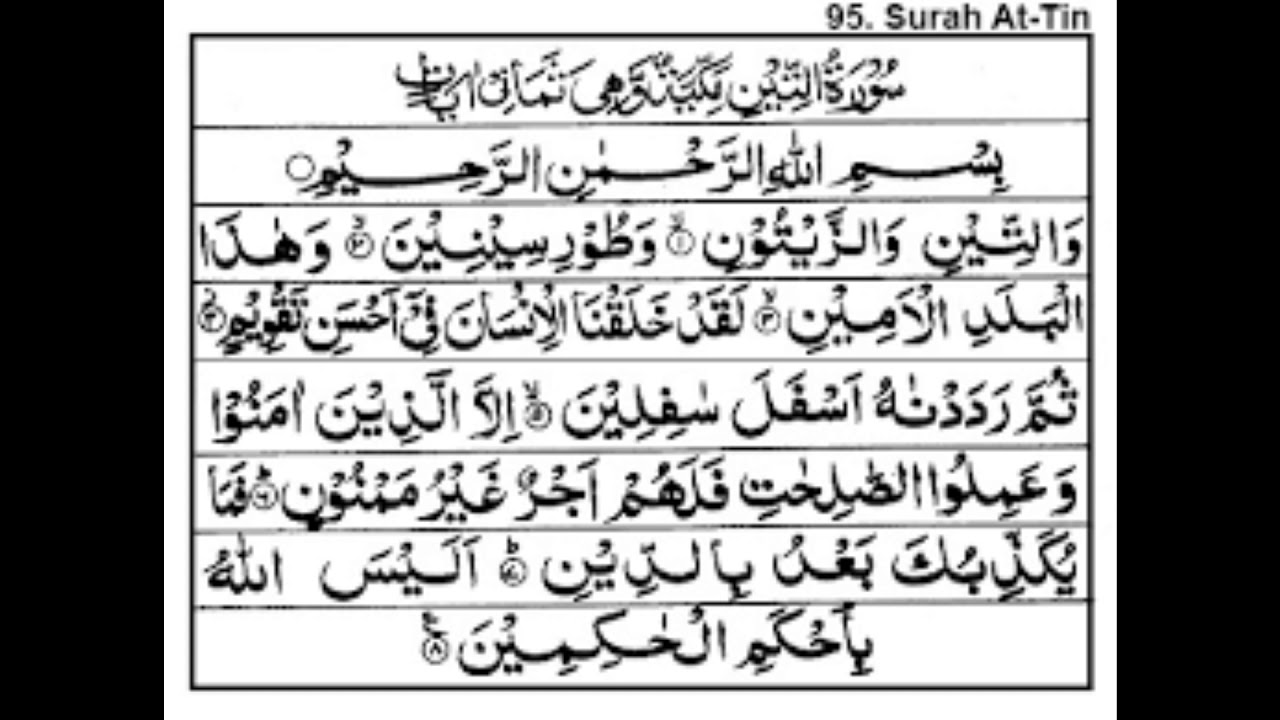 95. Surah At-Tin
سُوْرَةُ التِّيْنِ مَكِّيَّةٌ وَّهِىَ ثَمَانِىْ اٰيَاتٍ
بِسْمِ اللّٰهِ الرَّحْمٰنِ الرَّحِيْمِ ○
وَالتِّيْنِ وَالزَّيْتُوْنِ ۙ﴿۱﴾ وَطُوْرِ سِيْنِيْنَ ۙ﴿۲﴾ وَهٰذَا
الْبَلَدِ الْاَمِيْنِ ۙ﴿۳﴾ لَقَدْ خَلَقْنَا الْاِنْسَانَ فِىْۤ اَحْسَنِ تَقْوِيْمٍ ۫﴿۴﴾
ثُمَّ رَدَدْنٰهُ اَسْفَلَ سٰفِلِيْنَ ۙ﴿۵﴾ اِلَّا الَّذِيْنَ اٰمَنُوْا
وَعَمِلُوا الصّٰلِحٰتِ فَلَهُمْ اَجْرٌ غَيْرُ مَمْنُوْنٍ ؕ﴿۶﴾ فَمَا
يُكَذِّبُكَ بَعْدُ بِالدِّيْنِ ؕ﴿۷﴾ اَلَيْسَ اللّٰهُ
بِاَحْكَمِ الْحٰكِمِيْنَ ﴿۸﴾